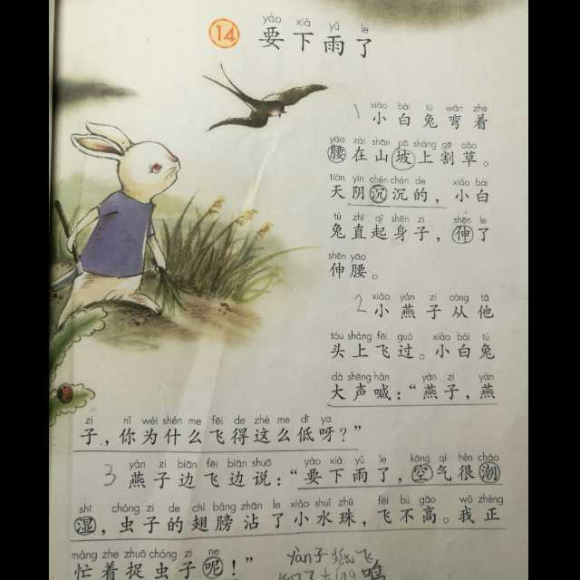 yào xià yǔ le
14 要下雨了
xiǎo bái tù wān zhe
1 小白兔弯着
yāo zài shān pō shàng gē cǎo
腰在山坡上割草。
tiān yīn chén chén de xiǎo bái
天阴沉沉的，小白
tù zhí qǐ shēn zi shēn le
兔直起身子，伸了
shēn yāo
伸腰。
xiǎo yàn zi cóng tā
2 小燕子从他
tóu shàng fēi guò xiǎo bái tù
头上飞过。小白兔
dà shēng hǎn yàn zi yàn
大声喊：“燕子，燕
zi nǐ wèi shén me fēi de zhè me dī ya
子，你为什么飞得这么低呀？”
yàn zi biān fēi biān shuō yào xià yǔ le kōng qì hěn cháo
3 燕子边飞边说：“要下雨了，空气很潮
shī chóng zi de chì bǎng zhān le xiǎo shuǐ zhū fēi bù gāo wǒ zhèng
湿，虫子的翅膀沾了小水珠，飞不高。我正
máng zhe zhuō chóng zi ne
忙着捉虫子呢！”
yàn子 飞
鸣